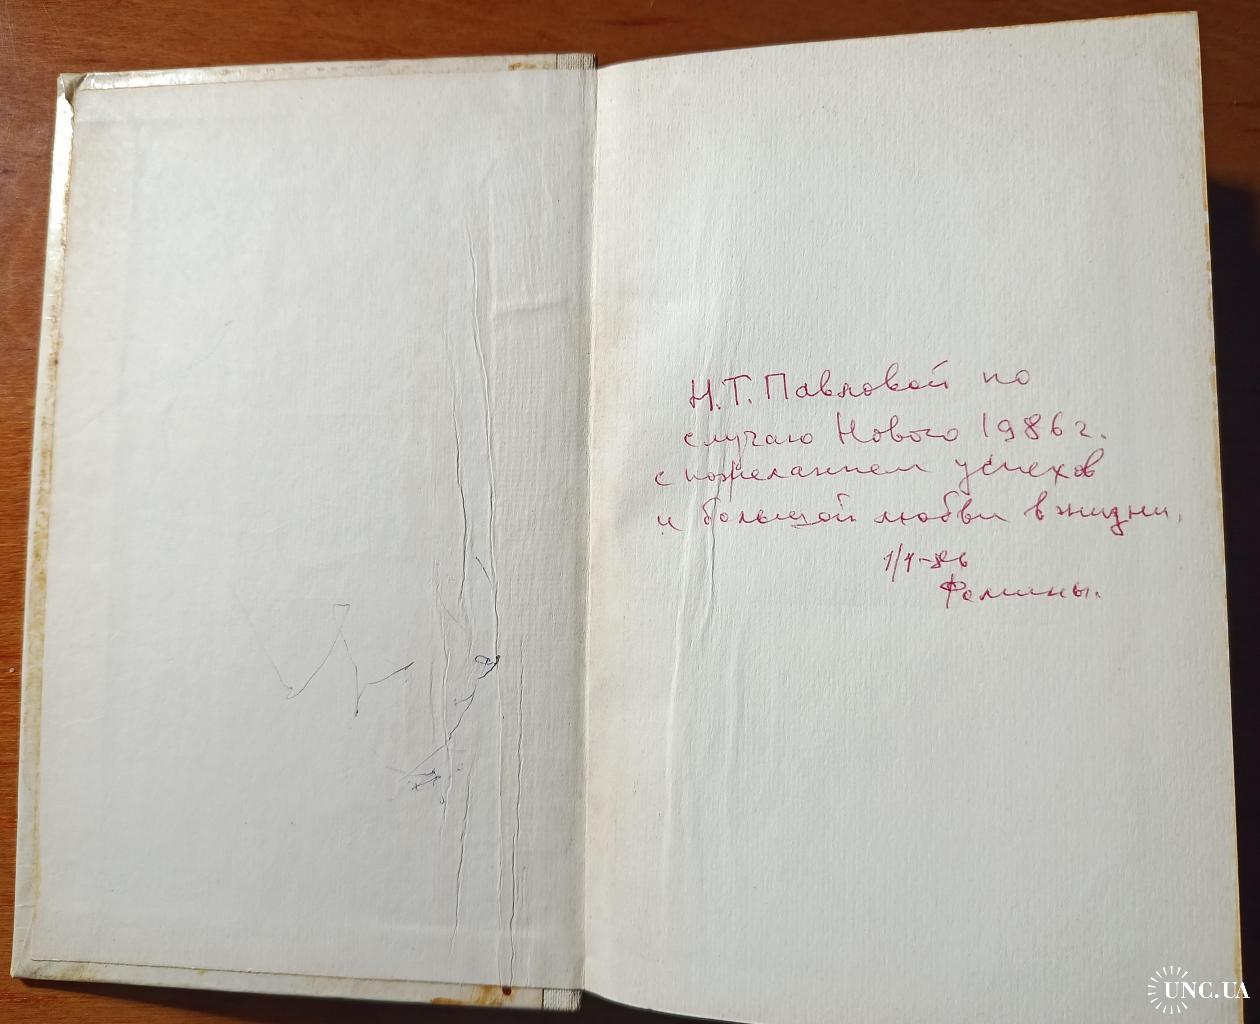 Н.Т. Павловой по
случаю Нового 1986 г.
с пожеланием успехов
и большой любви в жизни.
1/I-86
Фомины.
UNC.UA